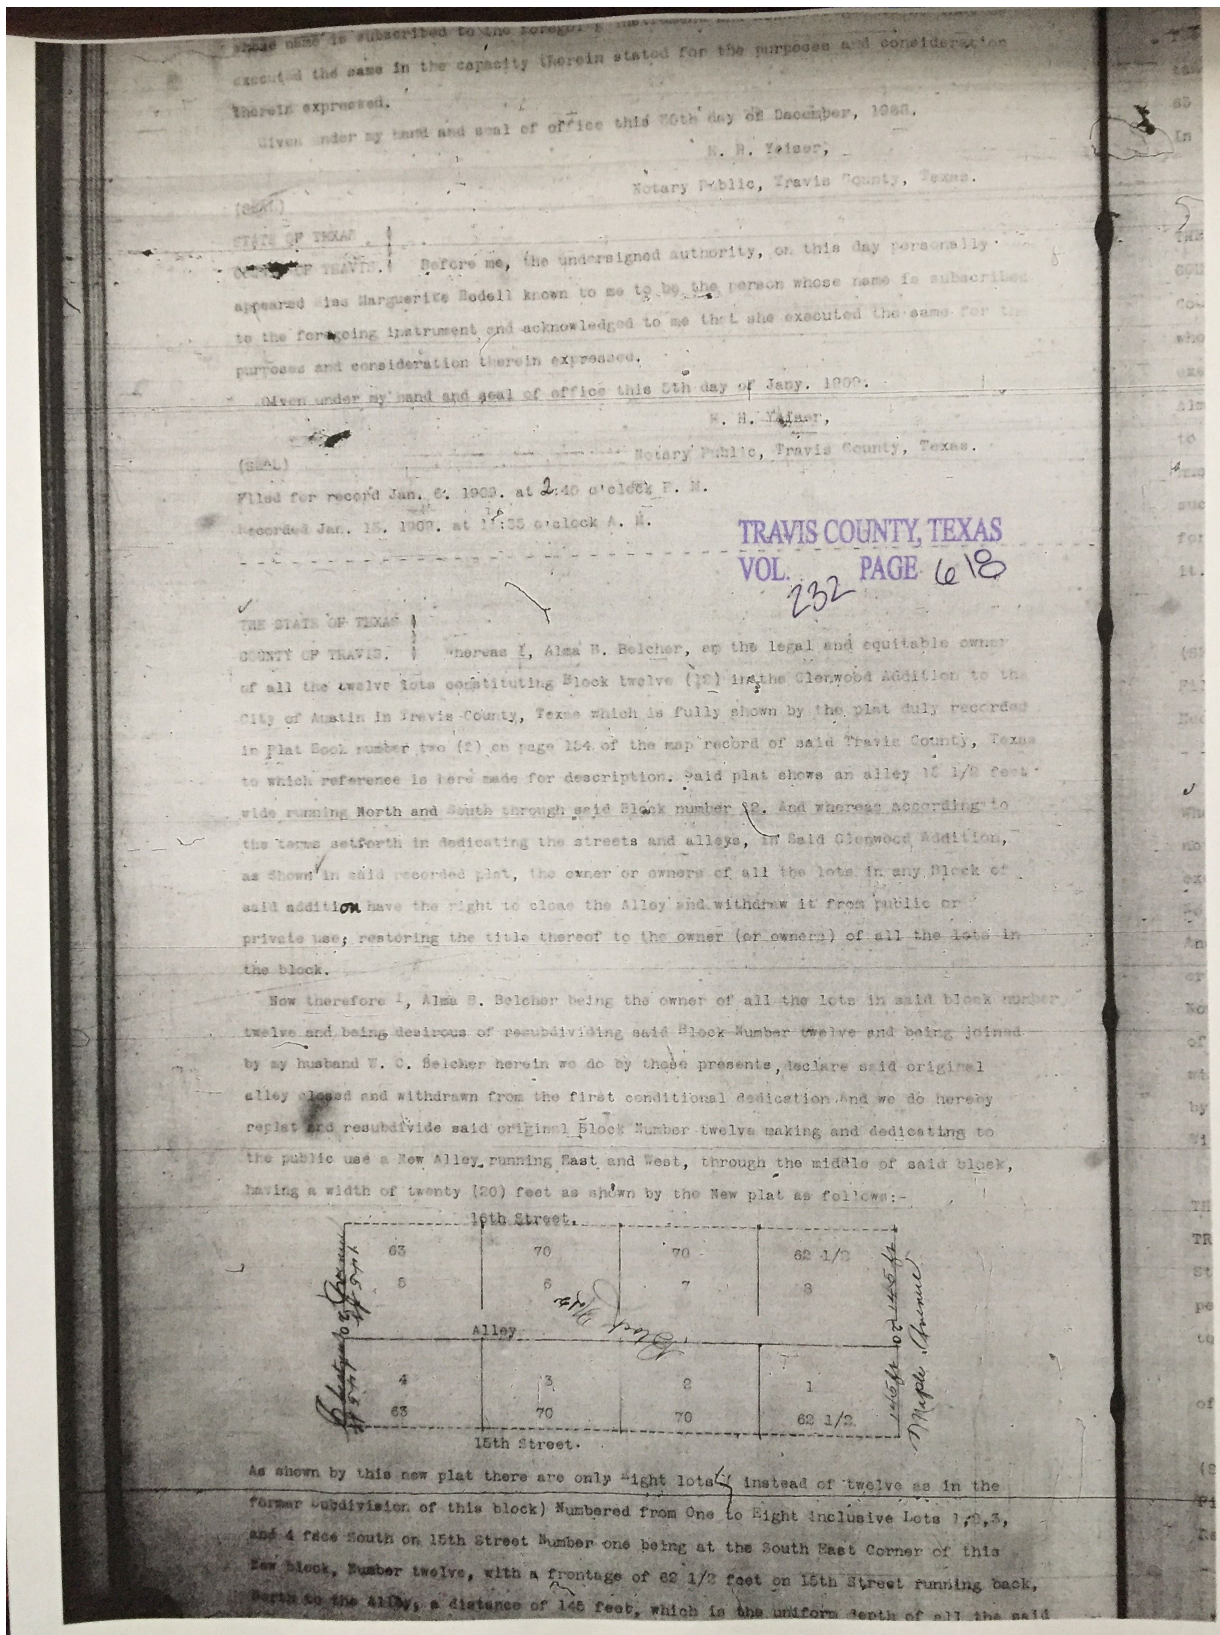 whose name is subscribed to the foregoing instrument and
executed the same in the capacity therein stated for the purposes and consideration
therein expressed.
Given under my hand and seal of office this 30th day of December, 1908.
Yeiser,
Notary Public, Travis County, Texas.
(SEAL)
STATE OF TEXAS
COUNTY OF TRAVIS. Before me, the undersigned authority, on this day personally
appeared Miss Marguerite Bedell known to me to be the person whose name is subscribed
to the foregoing instrument and acknowledged to me that she executed the same for the
purposes and consideration therein expressed.
Given under my hand and seal of office this 5th day of Jany. 1909.
H. Yeiser,
(SEAL) Notary Public, Travis County, Texas.
Filed for record Jan. 6. 1909. at 2:40 o'clock P. M.
Recorded Jan. 15. 1909. at o'clock A. M.
TRAVIS COUNTY, TEXAS
VOL. 232 PAGE 618
THE STATE OF TEXAS
COUNTY OF TRAVIS. Whereas I, Alma B. Belcher, am the legal and equitable owner
of all the twelve lots constituting Block twelve (12) in the Glenwood Addition to the
City of Austin in Travis County, Texas which is fully shown by the plat duly recorded
in Plat Book number two (2) on page 154 of the map record of said Travis County, Texas
to which reference is here made for description. Said plat shows an alley 1/2 feet
wide running North and South through said Block number 12. And whereas according to
the terms setforth in dedicating the streets and alleys, in Said Glenwood Addition,
as Shown in said recorded plat, the owner or owners of all the lots in any Block of
said addition have the right to close the Alley and withdraw it from public or
private use; restoring the title thereof to the owner (or owners) of all the lots in
the block.
Now therefore I, Alma B. Belcher being the owner of all the lots in said block number
twelve and being desirous of resubdividing said Block Number twelve and being joined
by my husband W. C. Belcher herein we do by these presents, declare said original
alley closed and withdrawn from the first conditional dedication And we do hereby
replat and resubdivide said original Block Number twelve making and dedicating to
the public use a New Alley running East and West, through the middle of said block,
having a width of twenty (20) feet as shown by the New plat as follows:-
16th Street.
63 70 70 62 1/2
5 6 7 8
Block No 12
Alley
145 ft 20 145 ft
Maple Avenue
4 3 2 1
63 70 70 62 1/2
15th Street.
As shown by this new plat there are only Eight lots ( instead of twelve as in the
former Subdivision of this block) Numbered from One to Eight inclusive Lots 1,2,3,
and 4 face South on 15th Street Number one being at the South East Corner of this
New block, Number twelve, with a frontage of 62 1/2 feet on 15th Street running back,
North to the Alley, a distance of 145 feet, which is the uniform depth of all the said